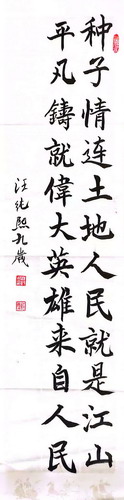 种子情连土地人民就是江山
平凡鑄就偉大英雄来自人民
汪纯熙九歲